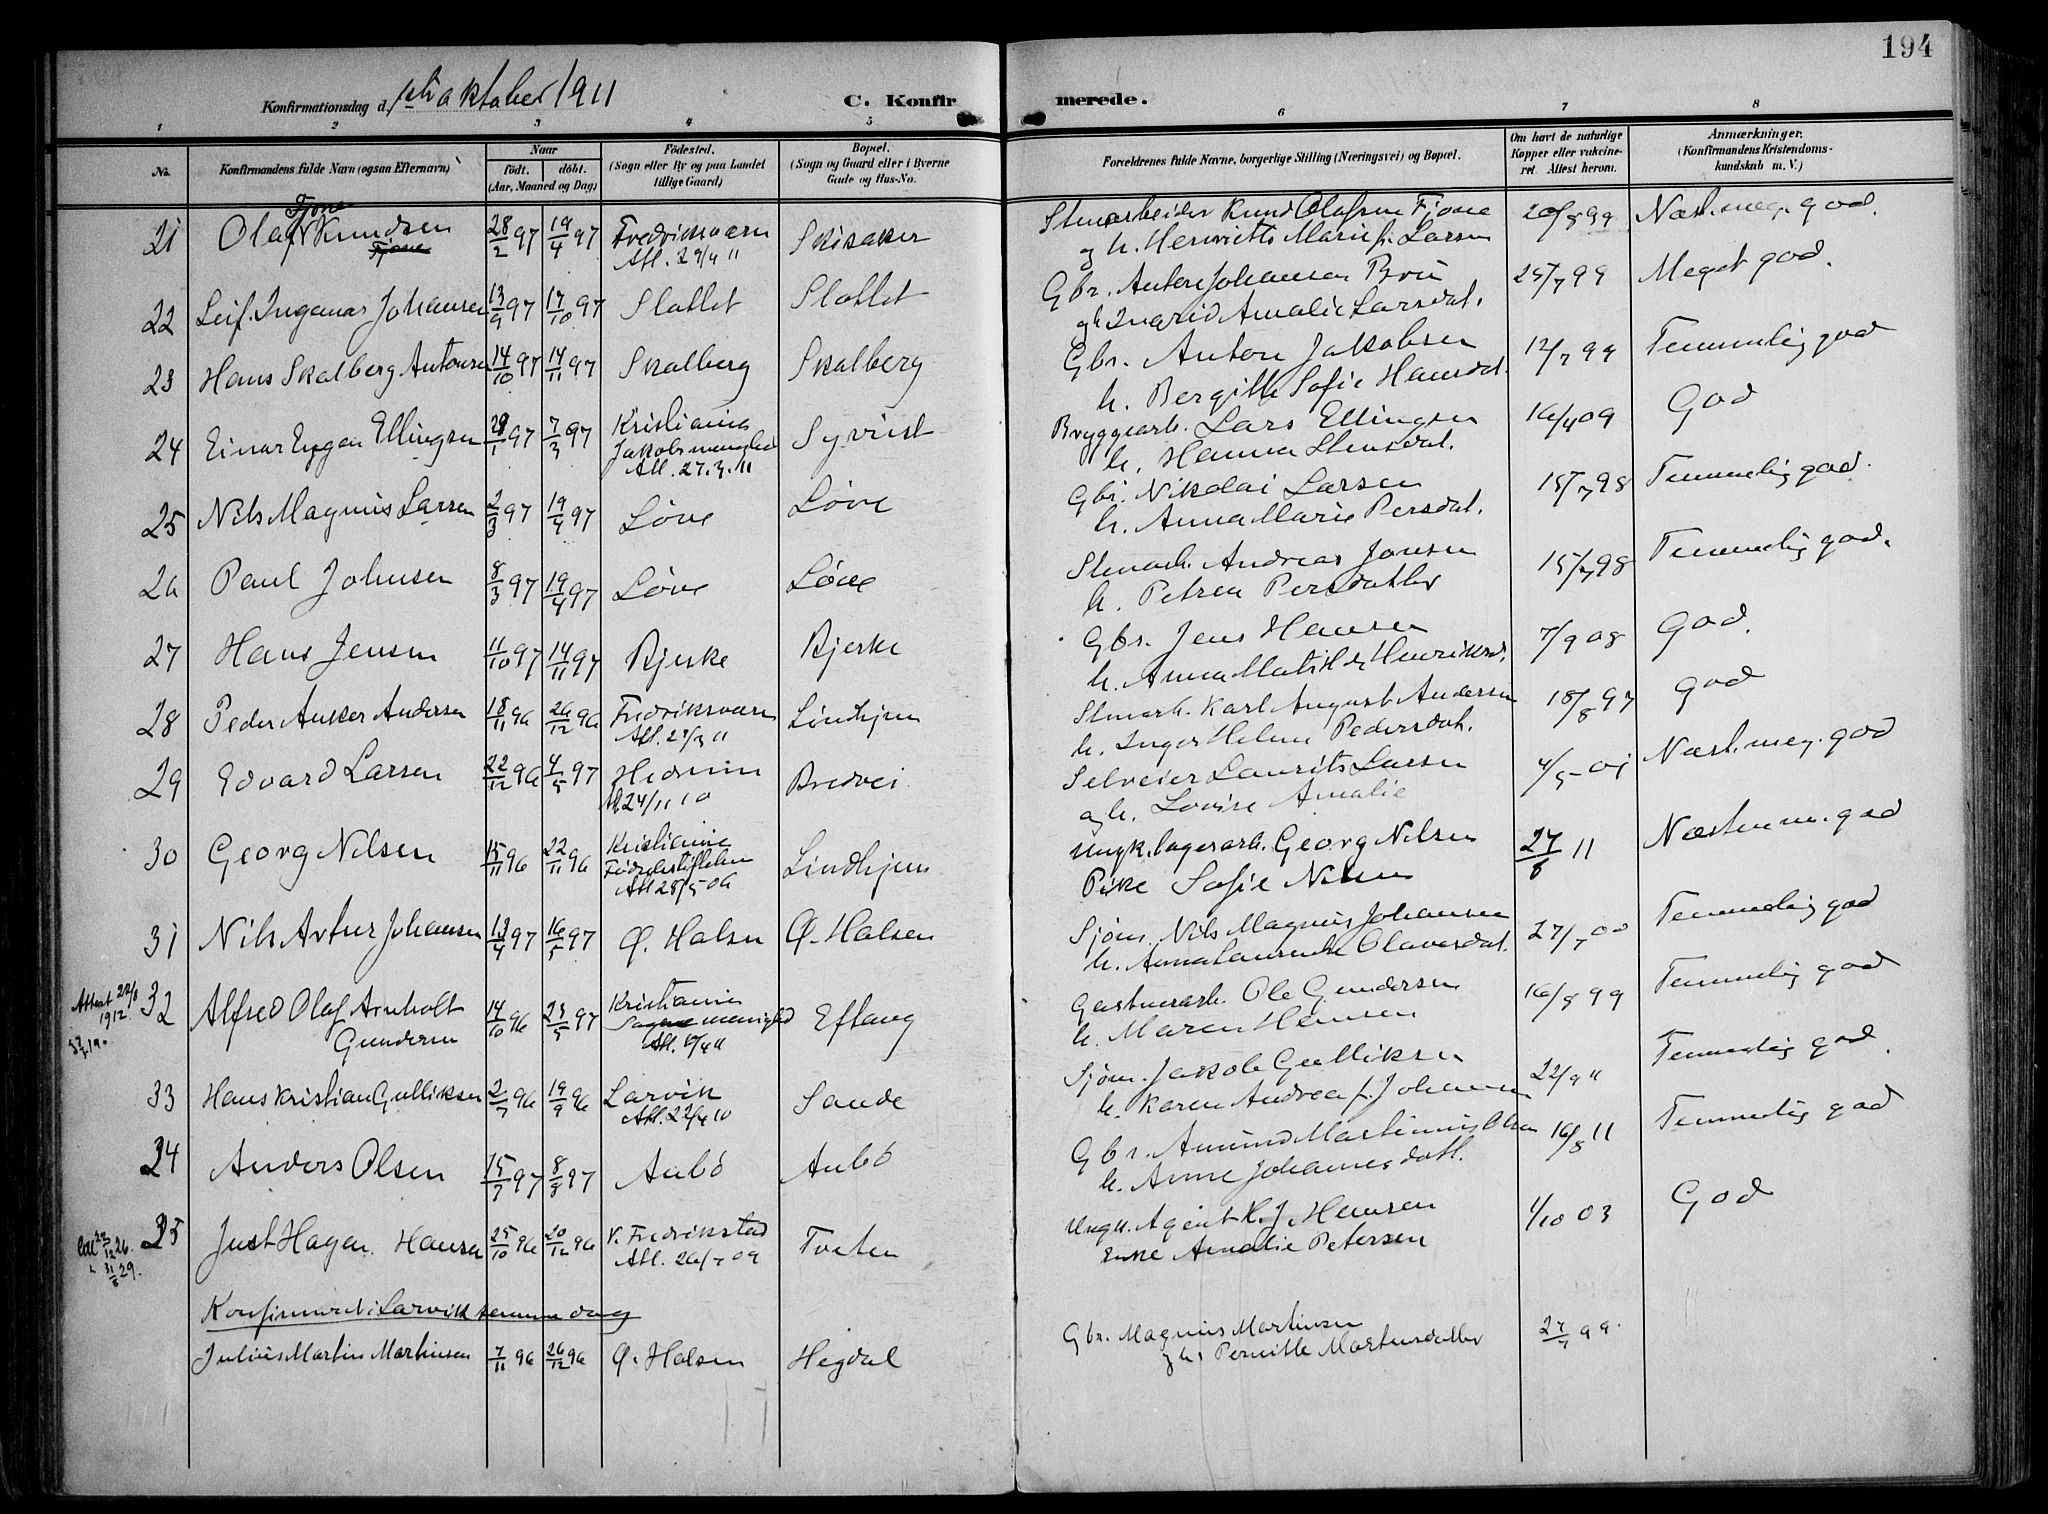 194
Konfirmationsdag d. 1ste oktober 1911 C. Konfirmerede.
1 2 3 4 5 6 7 8
No. Konfirmandens fulde Navn (ogsaa Efternavn) Naar født. døbt. (Aar, Maaned og Dag) Fødested. (Sogn eller By og paa Landet tillige Gaard) Bopæl. (Sogn og Gaard eller i Byerne Gade og Hus-No. Forældrenes fulde Navne, borgerlige Stilling (Næringsvei) og Bopæl. Om havt de naturlige Kopper eller vakcineret. Attest herom. Anmærkninger. (Konfirmandens Kristendomskundskab m. V.)
21 Olaf Fjone Knudsen Fjone 28/2 97 19/4 97 Fredriksværn Att. 29/4 11 Skisaker Stenarbeider Knud Olafsen Fjone og h. Henriette Marie f. Larsen 20/8 99 Næst. meg. god.
22 Leif Ingemar Johansen 13/9 97 17/10 97 Slottet Slottet Gbr. Anton Johansen Bru og h Ingrid Amalie Larsdat. 25/7 99 Meget god.
23 Hans Skalberg Antonsen 14/10 97 14/11 97 Skalberg Skalberg Gbr. Anton Jakobsen h. Bergitte Sofie Hansdat. 12/7 99 Temmelig god
24 Einar Eugen Ellingsen 29/1 97 7/3 97 Kristiania Jakobs menighed Att. 27.3.11 Syvrist Bryggearb. Lars Ellingsen h. Hanna Stensdat. 16/4 09 God
25 Nils Magnus Larsen 2/3 97 19/4 97 Løve Løve Gbr. Nikolai Larsen h. Anna Marie Persdat. 15/7 98 Temmelig god.
26 Paul Johnsen 8/3 97 19/4 97 Løve Løve Stenarb. Andreas Jonsen h. Petrea Persdatter 15/7 98 Temmelig god.
27 Hans Jensen 11/10 97 14/11 97 Bjerke Bjerke Gbr. Jens Hansen h. Anna Matilde Henriksd. 7/9 08 God.
28 Peder Anker Andersen 18/11 96 26/12 96 Fredriksværn Att. 27/3 11 Lindhjem Stenarb. Karl August Andersen h. Inger Helene Pedersdat. 18/8 97 God
29 Edvard Larsen 22/12 96 4/5 97 Hedrum Att. 24/11 10 Bredvei Selveier Laurits Larsen og h. Lovise Amalie 4/5 01 Næst. meg. god
30 Georg Nilsen 15/11 96 22/11 96 Kristiania Fødselsstiftelsen Att 28/5 06 Lindhjem Ungk. lagerarb. Georg Nilsen Pike Sofie Nilsen 24/8 11 Næsten m. god
31 Nils Artur Johansen 13/4 97 16/5 97 Ø. Halsen Ø. Halsen Sjøm. Nils Magnus Johansen h. Anna Laurentse Olavesdat. 27/7 00 Temmelig god
Attest 22/8 1912. 32 Alfred Olaf Arnholt Gundersen 14/10 96 23/5 97 Kristiania Sagene menighed Att. 6/4 11 Eftang Gartnerarb. Ole Gundersen h. Maren Hansen 16/8 99 Temmelig god
33 Hans Kristian Gulliksen 2/7 96 19/9 96 Larvik Att. 22/4 10 Sande Sjøm. Jakob Gulliksen h. Karen Andrea f. Johansen 22/9 11 Temmelig god.
34 Anders Olsen 15/7 97 8/8 97 Aubö Aubö Gbr. Amund Martinius Olsen h. Anne Johannesdatt. 16/8 11 Temmelig god
Att 22/12 26. " 31/8 29. 35 Just Hagen Hansen 25/10 96 20/12 96 V. Fredrikstad Att. 26/7 09 Tveten Ungk. Agent H. J. Hansen Enke Amalie Petersen 1/10 03 God
Konfirmeret i Larvik samme dag
Julius Martin Martinsen 7/11 96 26/12 96 Ø. Halsen Hegdal Gbr. Magnus Martinsen og h. Pernille Martinsdatter 27/7 99.